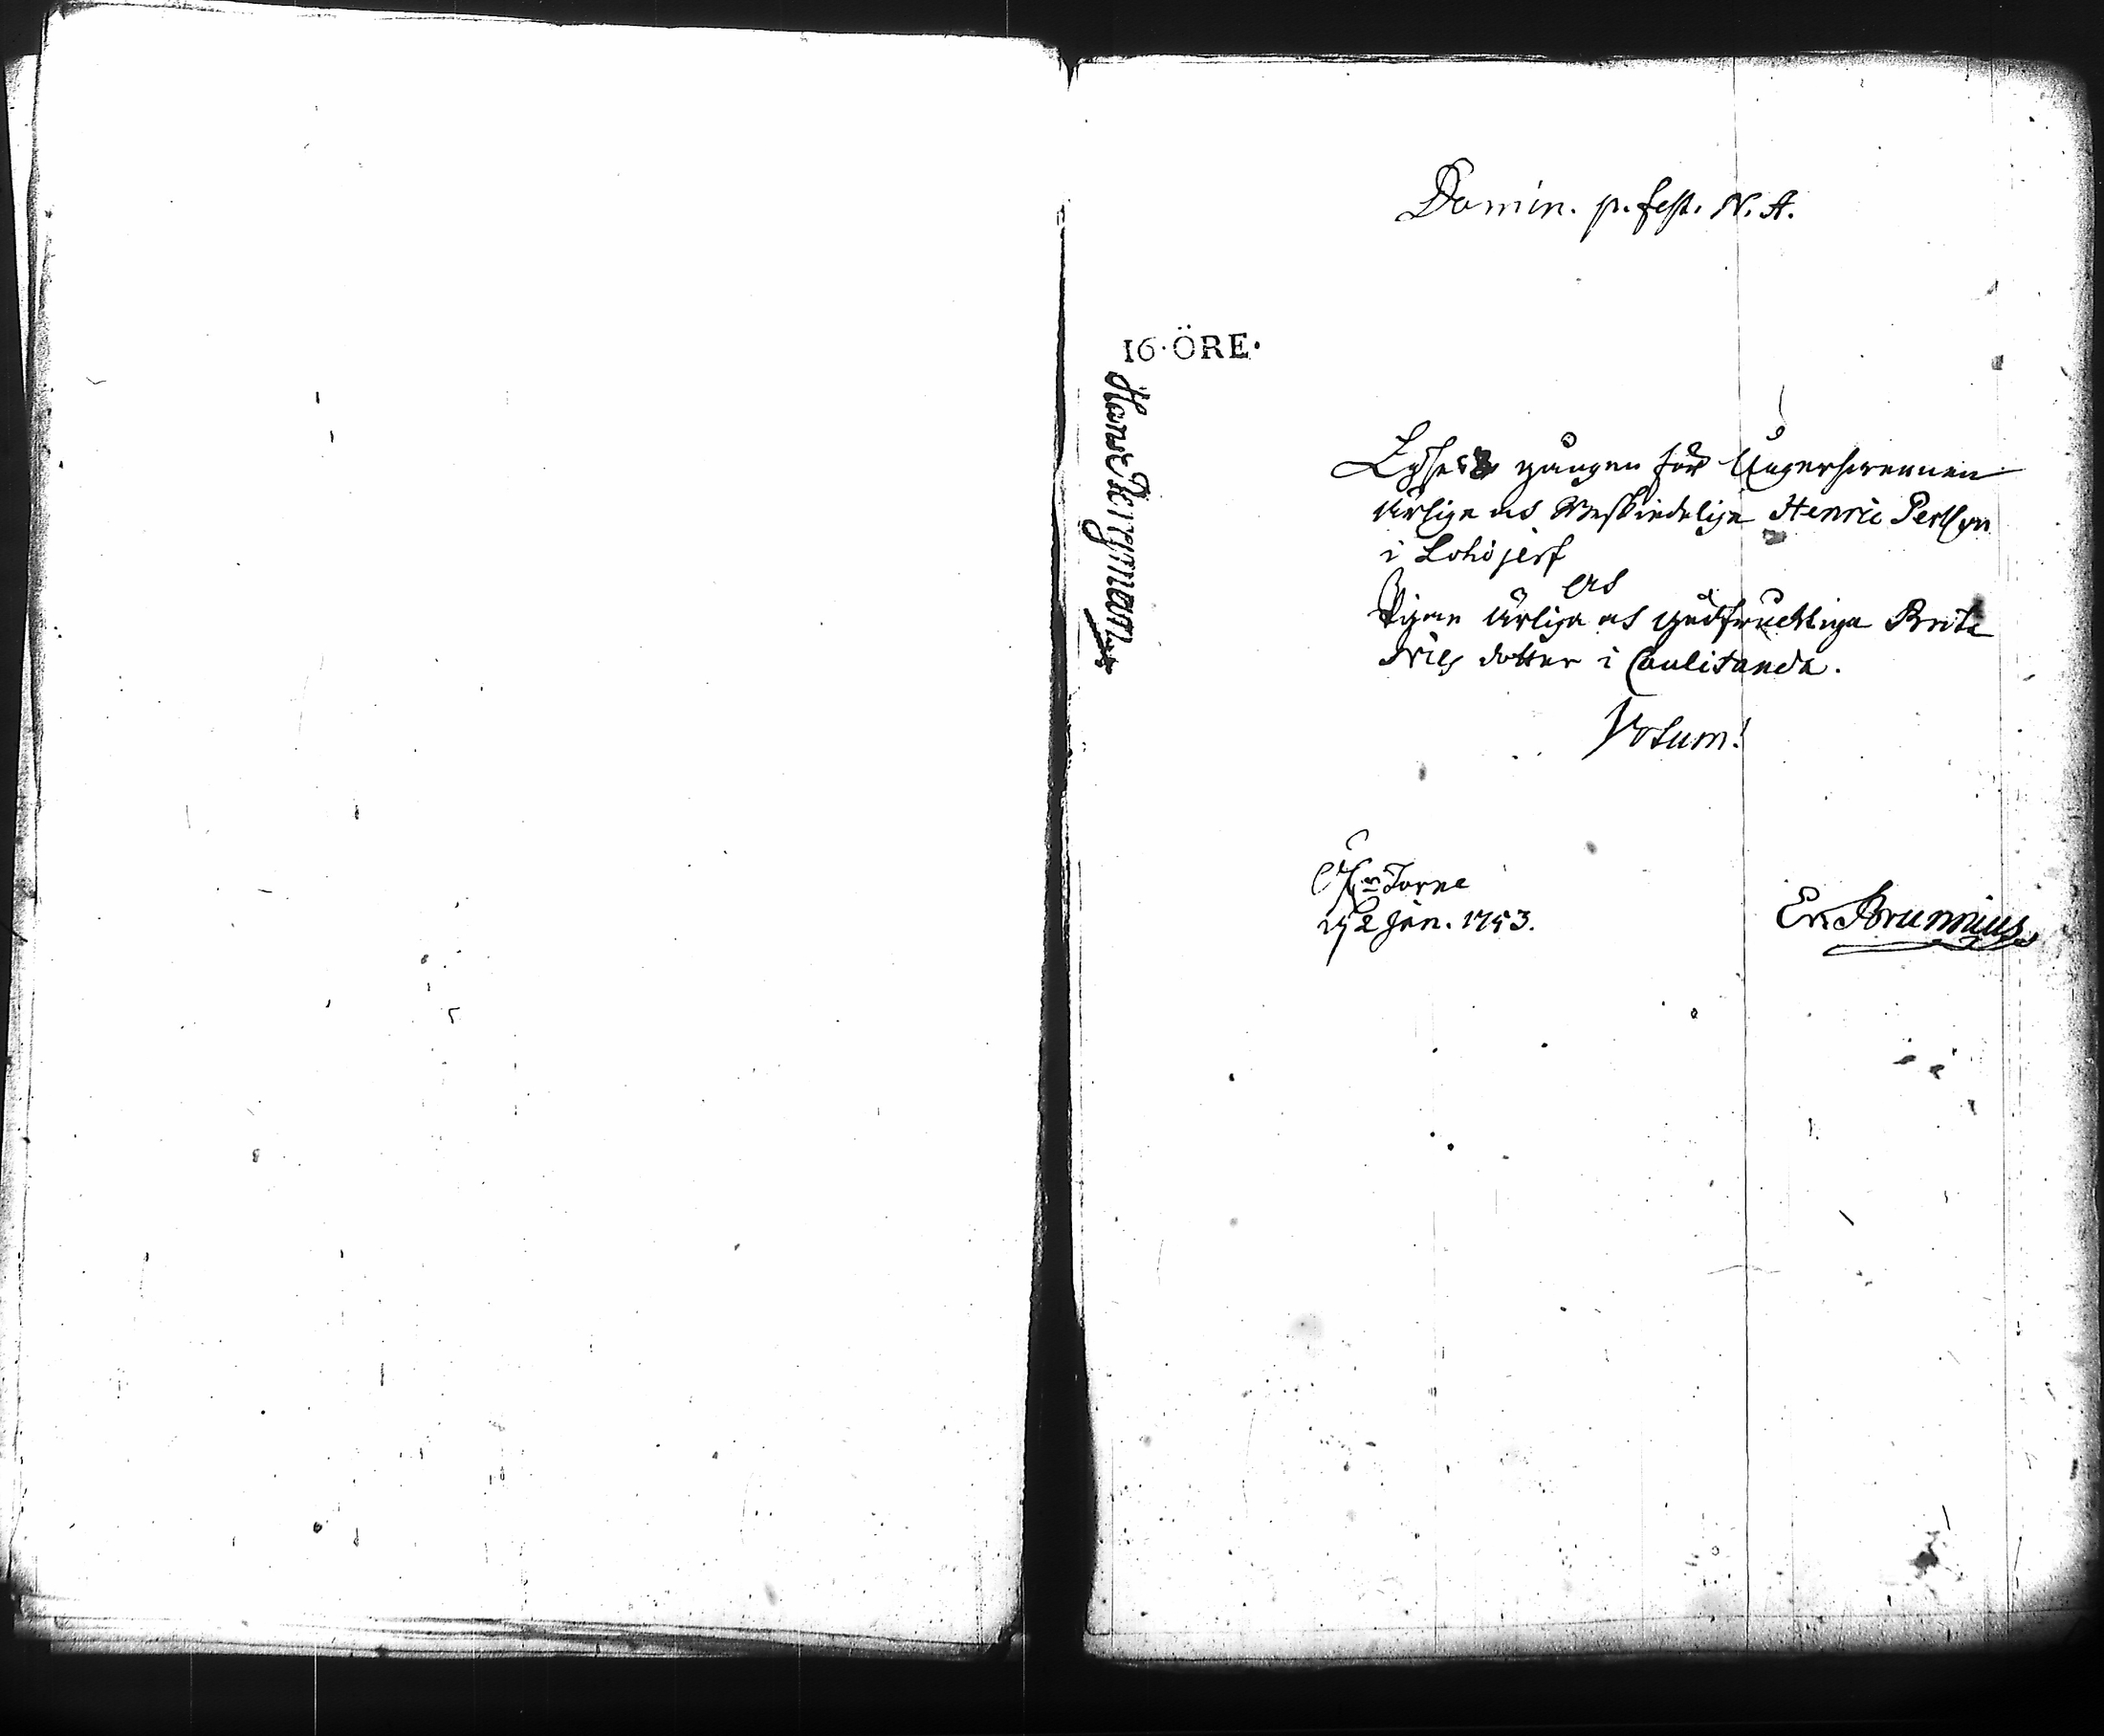 Domin. p. fest. N. A.
16·ÖRE·
Hans Bergman
Lyses gången för Ungersvennen
ärlige och beskiedelige Henric Persson
i Lohijerf
och
Pigan ärliga och gudfrucktiga Brita
Nils dotter i Caulitanda.
Votum!
Öfr Torne
d 2 Jan. 1753.
Er. Brunnius